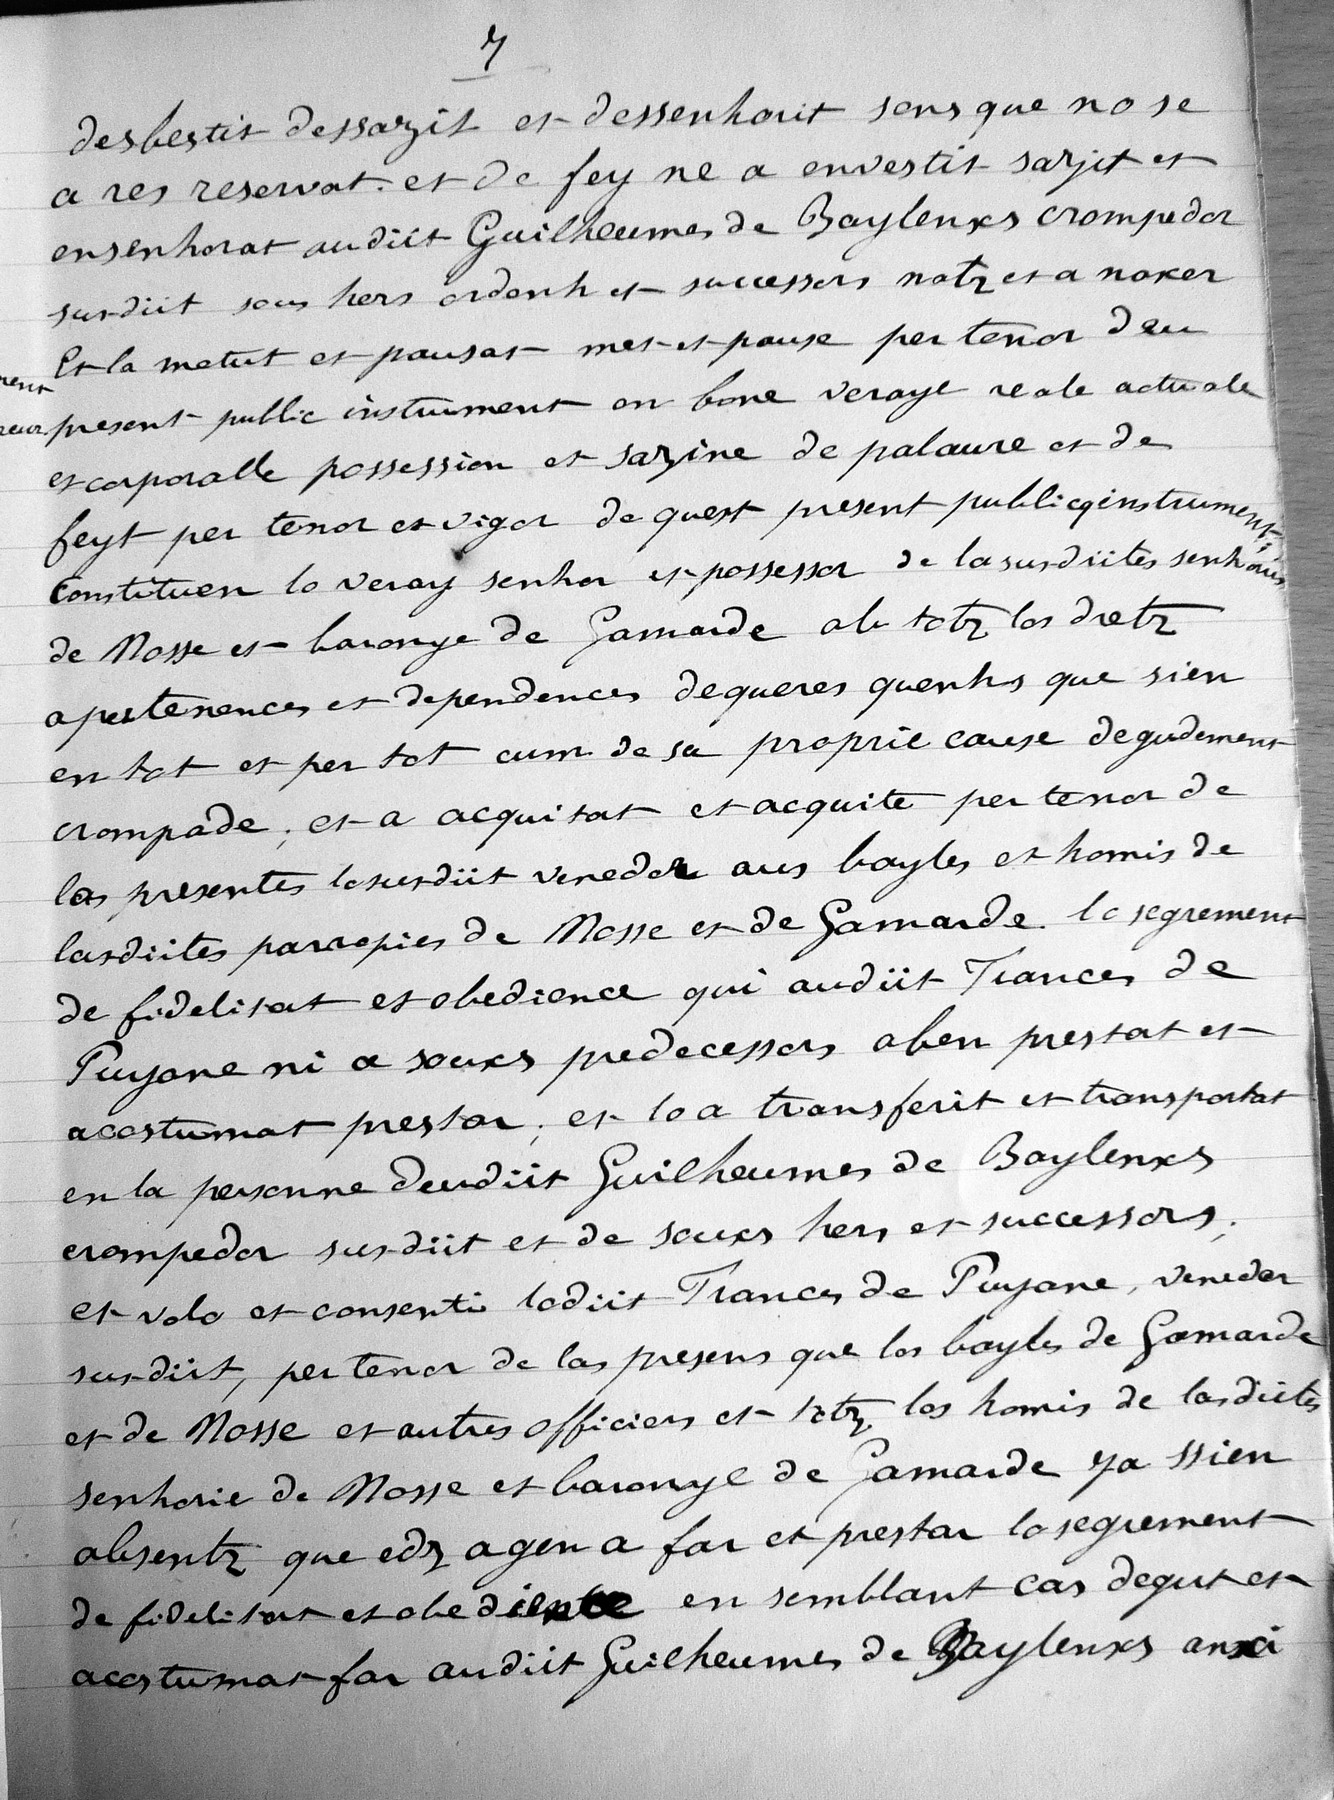 7
desbestit dessazit et dessenhorit sens que no se
a res reservat. et de fey ne a envestit sazit et
ensenhorat audiit Guilheumes de Baylenxs crompedor
susdiit sous hers ordenh et successors natz et a naxer
Et la metut et pausat met et pause per tenor deu
present public instrument en bone veraye reale actuale
et corporalle possession et sazine de palaure et de
feyt per tenor et vigor de quest present publicq instrument;
constituen lo veray senhor et possessor de la susdiites senhories
de Nosse et baronye de Gamarde ab totz los dretz
apertenences et dependences dequeres quenhs que sien
en tot et per tot cum de sa proprie cause degudement
crompade; et a acquitat et acquite per tenor de
las presentes lo susdiit venedor aus bayles et homis de
lasdiites parropies de Nosse et de Gamarde. lo segrement
de fidelitat et obedience qui audiit Frances de
Puyane ni a souxs predecessors aben prestat et
acostumat prestar; et lo a transferit et transportat
en la personne deudiit Guilheumes de Baylenxs
crompedor susdiit et de souxs hers et successors;
et volo et consenti lodiit Frances de Puyane, venedor
susdiit, per tenor de las presens que los bayles de Gamarde
et de Nosse et autres officiers et totz los homis de lasdiites
senhorie de Nosse et baronye de Gamarde ya ssien
absentz que edz agen a far et prestar lo segrement
de fidelitat et obedience en semblant cas degut et
acostumat far audiit Guilheumes de Baylenxs anxi